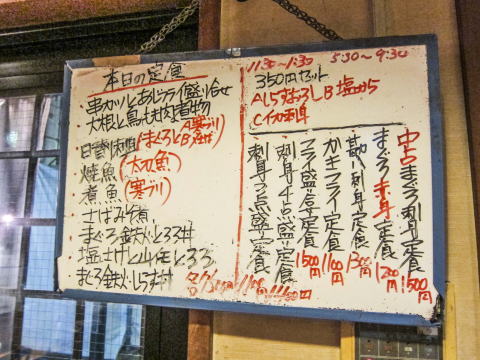 本日の定食
・串カツとあじフライ盛り合せ
・大根と鳥もも肉煮物
・焼魚(太刀魚)
・煮魚(寒ブリ)
・さばみそ煮
・まぐろ鉄火ととろろ丼
・塩さけと山芋とろろ
・まぐろ鉄火しらす丼
11:30~1:30 5:30~9:30
350円セット
Aしらすおろし B塩から
Cイカ刺身
中とろまぐろ刺身定食 1500円
まぐろ赤身定食 1200円
刺身定食 1300円
カキフライ定食 1100円
フライ盛合定食 1500円
刺身4点盛定食
刺身5点盛定食